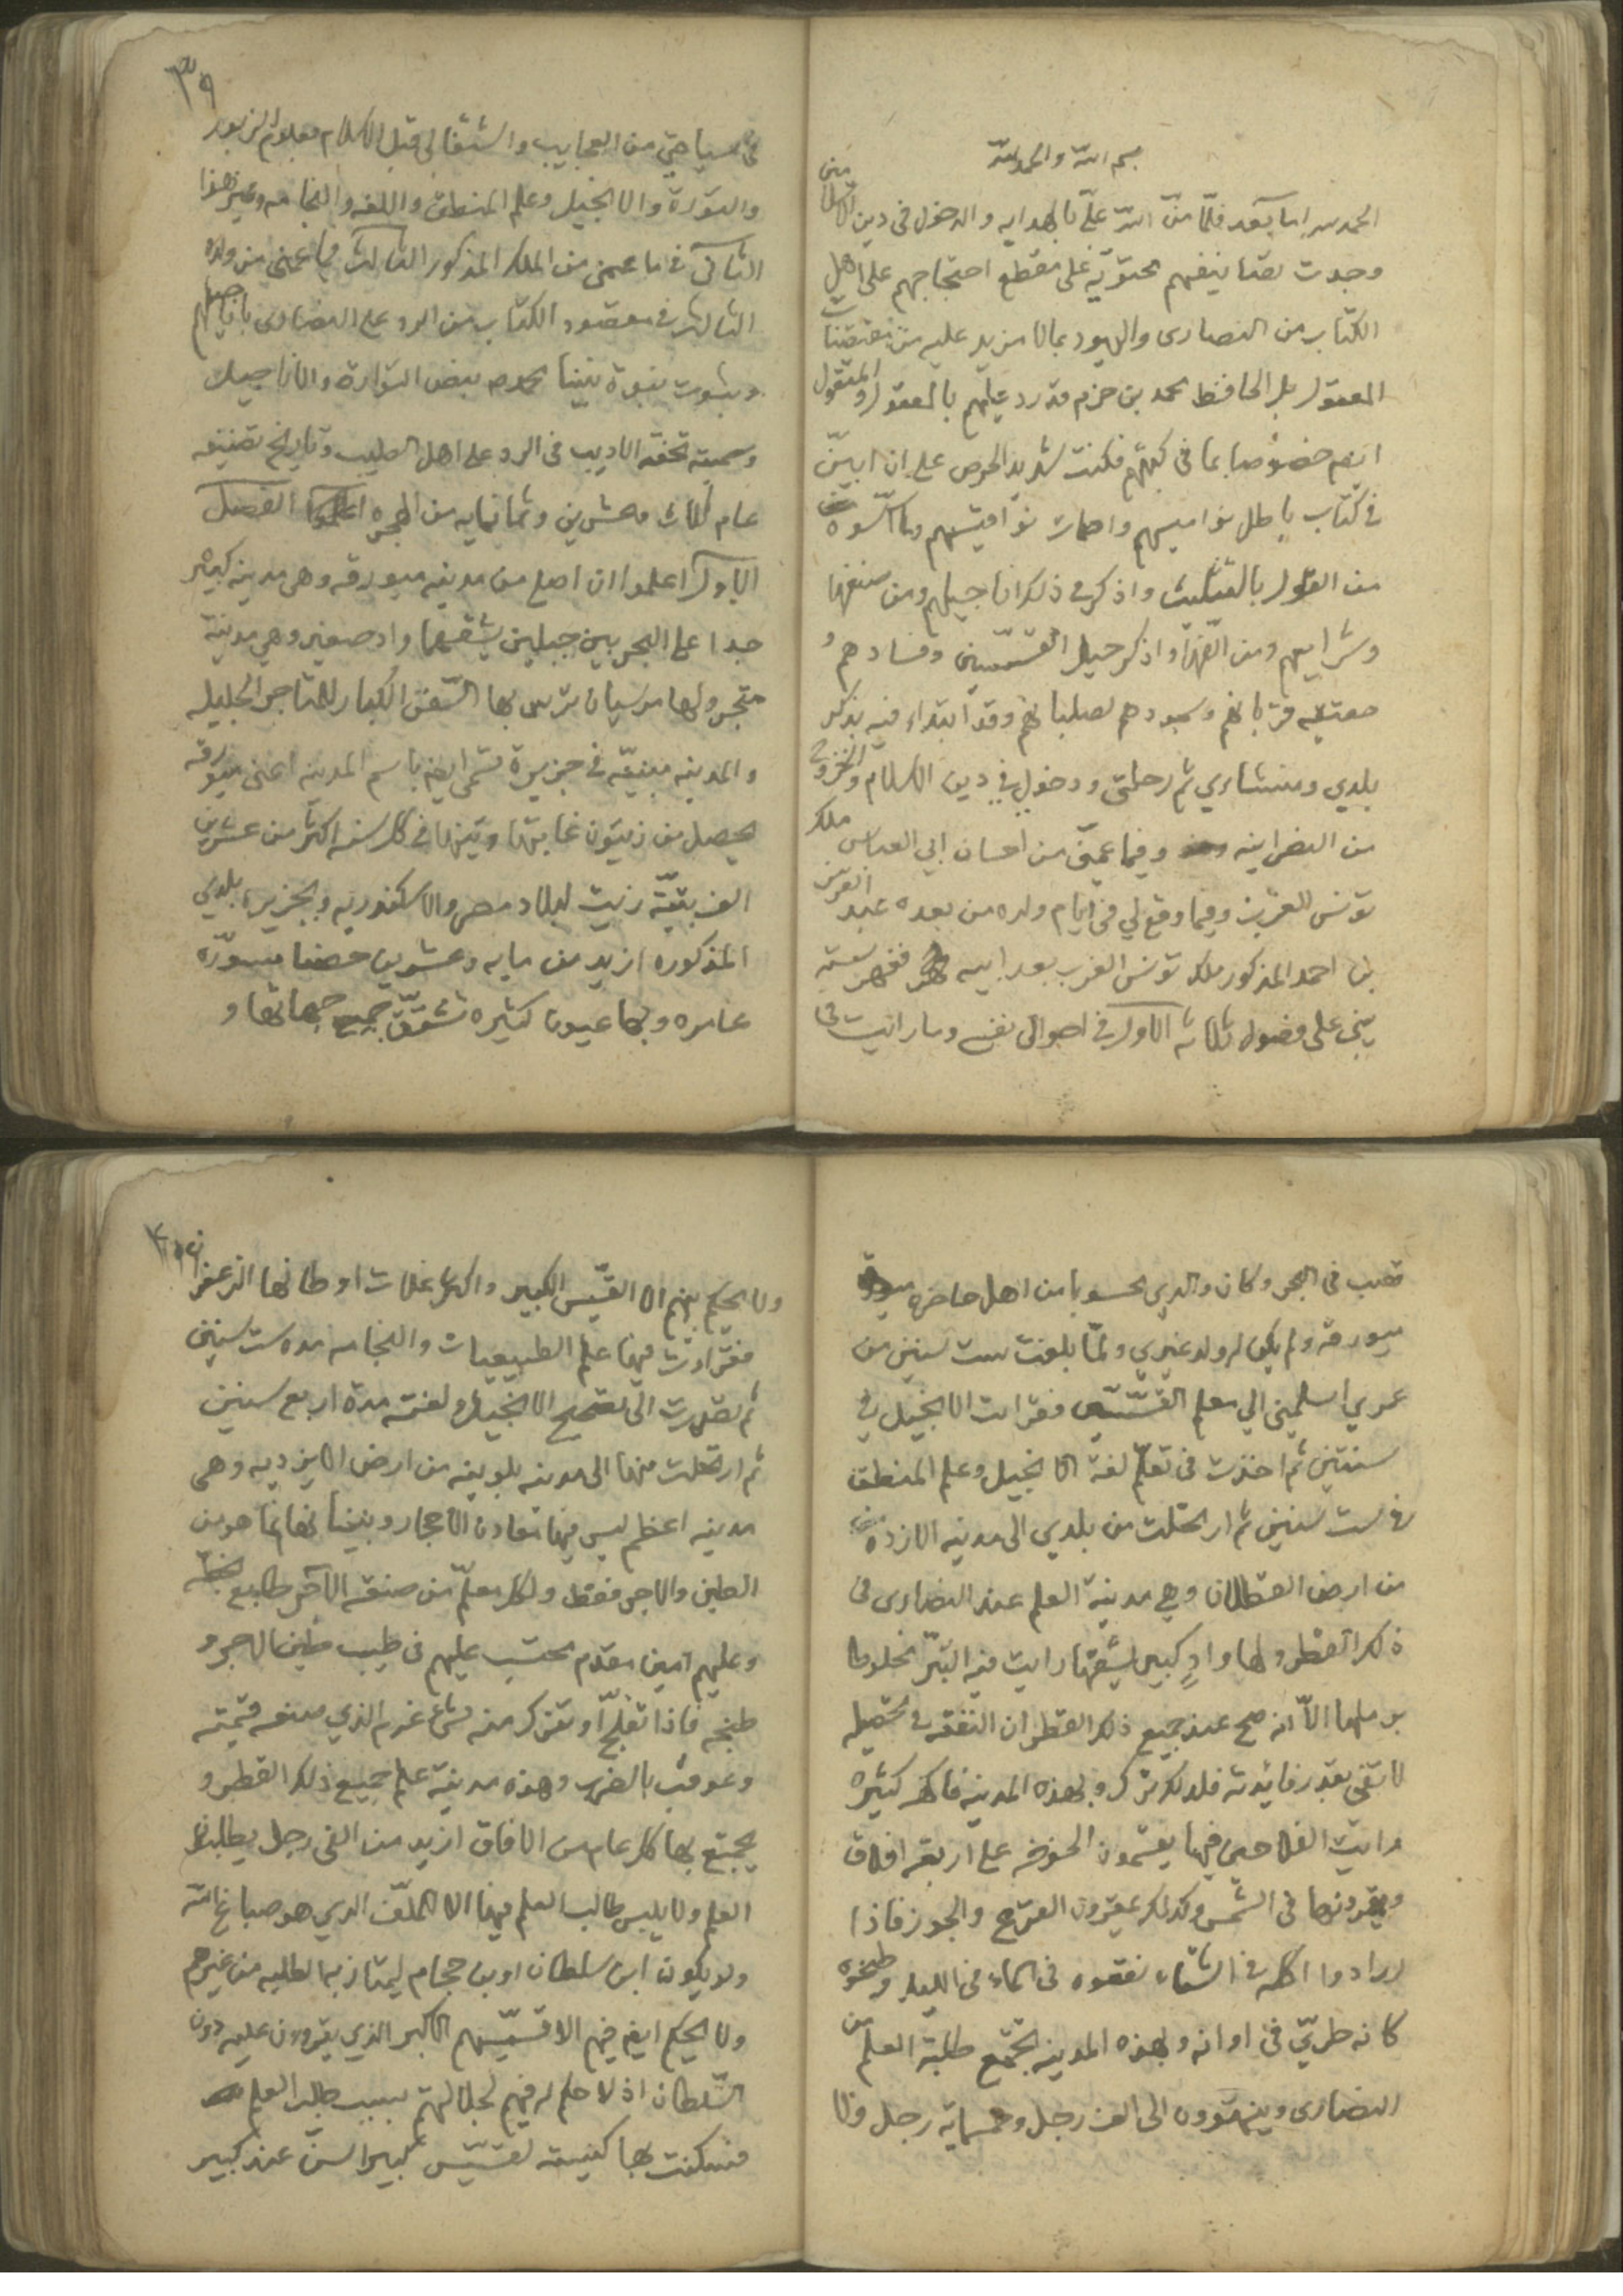 بسم الله والحمد لله
الحمد لله اما بعد فلمّا منّ الله علّي بالهدايه والدخول في دين الاسلام
وجدت تصانيفهم محتويّه على مقطع احتجاجهم على اهل
الكتاب من النصارى واليهود بمالا مزيد عليه من مقتضيات
المعقول بل الحافظ محمد بن حزم قد رد عليهم بالمعقول والمنقول
ايضم خصوصا بما في كتبهم فكنت شديد الحرص على ان ابيّن
في كتاب باطل نواميسهم وما اسّسوه
من القول بالتثليث واذكر في ذلك اناجيلهم ومن صنفها
وشرايعهم ومن الّفها واذكر حيل القسّيسين وفسادهم و
قربانهم وسجودهم لصلبانهم وقد ابتداء فيه بذكر
بلدي ومنشاءي ثم رحلتي ودخولي في دين الاسلام والخروج
من النصرانيه وفيما عمّني من احسان ابي العباس ملك
تونس الغرب وفيما وقع لي في ايام ولده من بعده عبد العزيز
بن احمد المذكور ملك تونس الغرب بعد ابيه ففهرسته
يبنى على فصول ثلاثه الاول في احوالي نفسي وما رايت في
٣٩
سياحتي من العجايب واشتغالي قبل الاسلام بعلوم الزبور
والتورة والانجيل وعلم المنطق واللغه والنجامه وغير هذا
الثاني في ما عمني من الملك المذكور الثالث فيما عمني من ولده
الثالث في مقصود الكتاب من الرد على النصارى باناجيلهم
وبثبوت نبوة نبينا محمد بنص التوارة والاناجيل
وسميته تحفة الاديب في الرد على اهل الصليب وتاريخ تصنيفه
عام ثلاث وعشرين وثمانمايه من الهجره الفصل
الاول اعلموا ان اصلي من مدينه ميورقه وهي مدينه كبيره
جدا على البحر بين جبلين يشقها واد صغير وهي مدينة
متجر ولها مرسيان ترسى بها السّفن الكبار للمتاجر الجليله
والمدينه مبنيّه في جزيرة تسمى ايضم باسم المدينه اعنى ميورقه
يحصل من زيتون غابتها وتينها في كل سنه اكثر من عشرين
الف بتيّه زيت لبلاد مصر والاسكندريه وبجزيره بلدي
المذكوره ازيد من مايه وعشرين حصنا مسوّره
عامره وبها عيون كثيره تشقّ جميع جهاتها و
تصب في البحر وكان والدي محسوبا من اهل حاضره
ميورقه ولم يكن له ولد غيري ولمّا بلغت ست سنين من
عمري اسلمني الي معلم القسّيس فقرات الانجيل في
سنتين ثم اخذت في تعلّم لغة الانجيل وعلم المنطق
في ست سنين ثم ارتحلت من بلدي الى مدينه الازده
من ارض القطلان وهي مدينة العلم عند النصارى في
ذلك القطر ولها وادٍ كبير يشقها رايت فيه التبّر مخلوطا
برملها الاّ انه صح عند جميع ذلك القطر ان النفقه في تحصيله
لا تفي بقدر فائدته فلذلك ترك وبهذه المدينه فاكهه كثيره
رايت الفلاحين فيها يقسمون الخوخه على اربعة افلاق
ويقددونها في الشمس وكذلك القرع والجوز فاذا
ارادوا اكله في الشتاء نقعوه في الماء في الليل وطبخوه
كانه طريّ في اوانه وبهذه المدينه تجتمع طلبة العلم من
النصارى وينتهوون الى الف رجل وخمسمايه رجل ولا
ولا يحكم بهم الا القسّيس الكبير واكثر غلات اوطانها الزعفران
فقرات فيها علم الطبيعيات والنجامه مده ست سنين
ثم تصدرت الى الانجيل ولغته مدة اربع سنين
ثم ارتحلت منها الى مدينه بلونيه من ارض وهي
مدينه اعظم ليس فيها معادن الاحجار وبنيانها انما هو من
الطين والاجر فقط ولكل معلّم من صنعة الآجر طابع
وعليهم امين مقدم محتسب عليهم في طيب طين الاجر و
طبخه فاذا تفلّح او تفرك منه شئ غرم الذي صنعه قيمته
وعوقب بالضرب وهذه مدينة علم جميع ذلك القطر و
يجتمع بها كل عام من الافاق ازيد من الفي رجل يطلبون
العلم ولا يلبس طالب العلم فيها الا الملّف الذي هو صباغ الله
ولو يكون ابن سلطان او بن حجام ليمتاز به الطلبه من غيرهم
ولا يحكم ايضم فيهم الا قسّيسهم الاكبر الذي يقرون عليه دون
السّلطان اذ لا حكم له فيهم لجلالتهم بسبب طلب العلم
فسكنت بها كنيسة لقسّيس كبير السنّ عند كبير